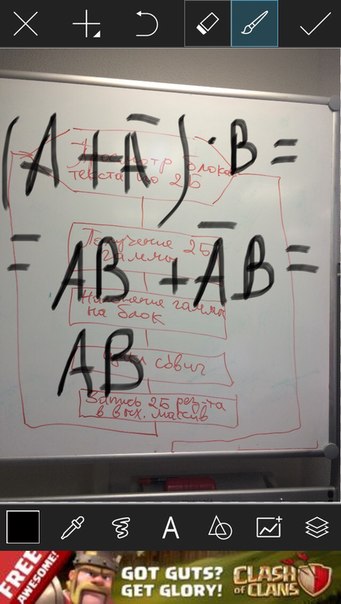 (A+Ā)·B=
Просмотр блока
текста по 2б
=AB+ĀB=
Получение 2Б
гаммы
Наложение гаммы
на блок
AB
сдвиг
Запись 2Б рез-та
в вых. массив
FREE
AWESOME!
GOT GUTS?
GET GLORY!
CLASH
OF CLANS